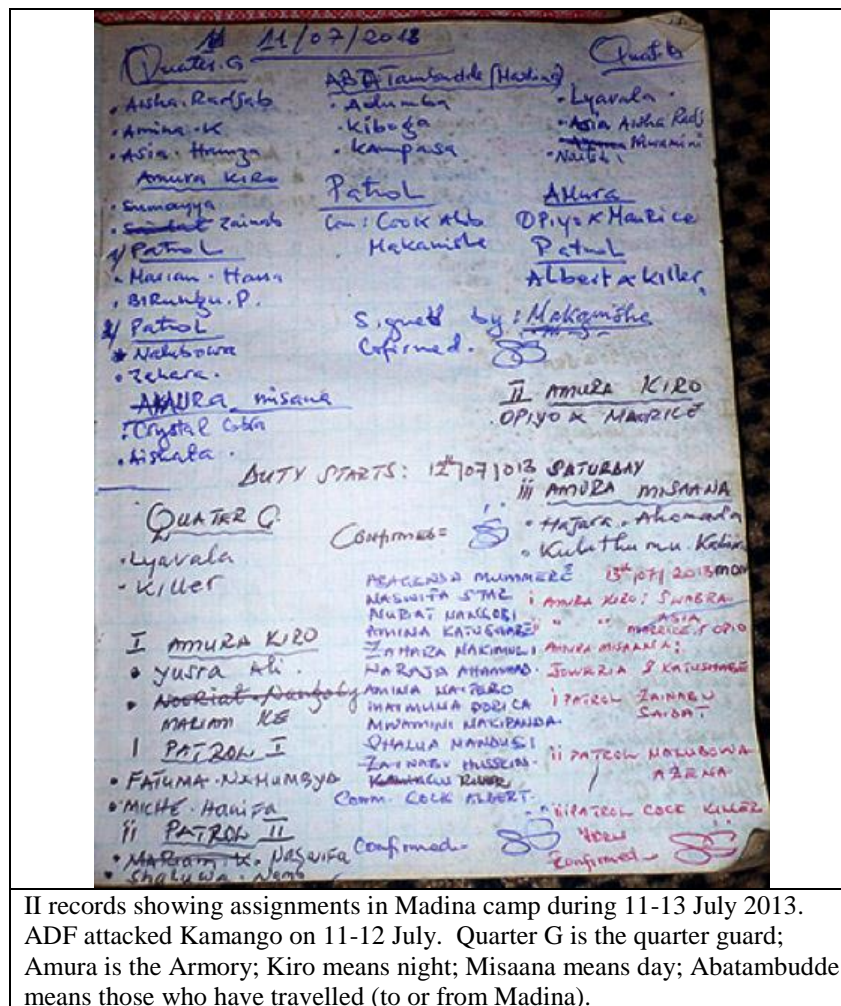 11/07/2013
Quater.G
• Aisha. Radjab
• Amina. K
• Asia. Hamza
Amura Kiro
• Sumayya
• Zainab
1/ Patrol
• Mariam. Hana
• Birungu. P.
2/ Patrol
• Nalubowa
• Zahara.
AMURA misana
: Crystal Cobra
• Aishata.
ABATambudde (Madina)
• Adumba
• Kiboga
• Kampasa
Patrol
Com: Cook Alb
Makanishe
Signed by: Makanishe
Cofirmed.
Quat.G
• Lyavala.
• Asia Aisha Radj
Mwamini
AMura
Opiyo & Maurice
Patrol
Albert & Killer.
II AMURA KIRO
OPIYO & MAURICE
DUTY STARTS: 12th/07/013 SATURDAY
iii AMURA MISAANA
• Hajara. Ahamada
• Kuluthumu. Kabir
QUATER G.
• Lyavala
• Killer
I AMURA KIRO
• Yusra Ali.
MARIAM KE
I PATROL I
• FATUMA. NAMUMBYA
• MICHE. Hanifa
ii PATROL II
• Mariam K. Naswifa
• Shaluwa. Namb
Confirmed=
NASWIFA STAR
NUBAT NANGOBI
AMINA KATUSHABE
ZAHARA NAKIMULI
AMINA NAIPERO
MAYMUNA DORICA
MWAMINI NAKIPANDA.
SHALUA NANDUGI
ZAINABU HUSSEIN.
RIVER
Comm. COCK ALBERT.
Confirmed-
13th/07/2013 mon
i AMURA KIRO: SWABRA
" " ASIA
MARRICE & OPIO
AMURA MISAANA:
JOWERIA & KATUSHABE
i PATROL ZAINABU
SAIDAT
ii PATROL NALUBOWA
AZENA
iii PATROL COCK KILLER
Confirmed
II records showing assignments in Madina camp during 11-13 July 2013.
ADF attacked Kamango on 11-12 July. Quarter G is the quarter guard;
Amura is the Armory; Kiro means night; Misaana means day; Abatambudde
means those who have travelled (to or from Madina).